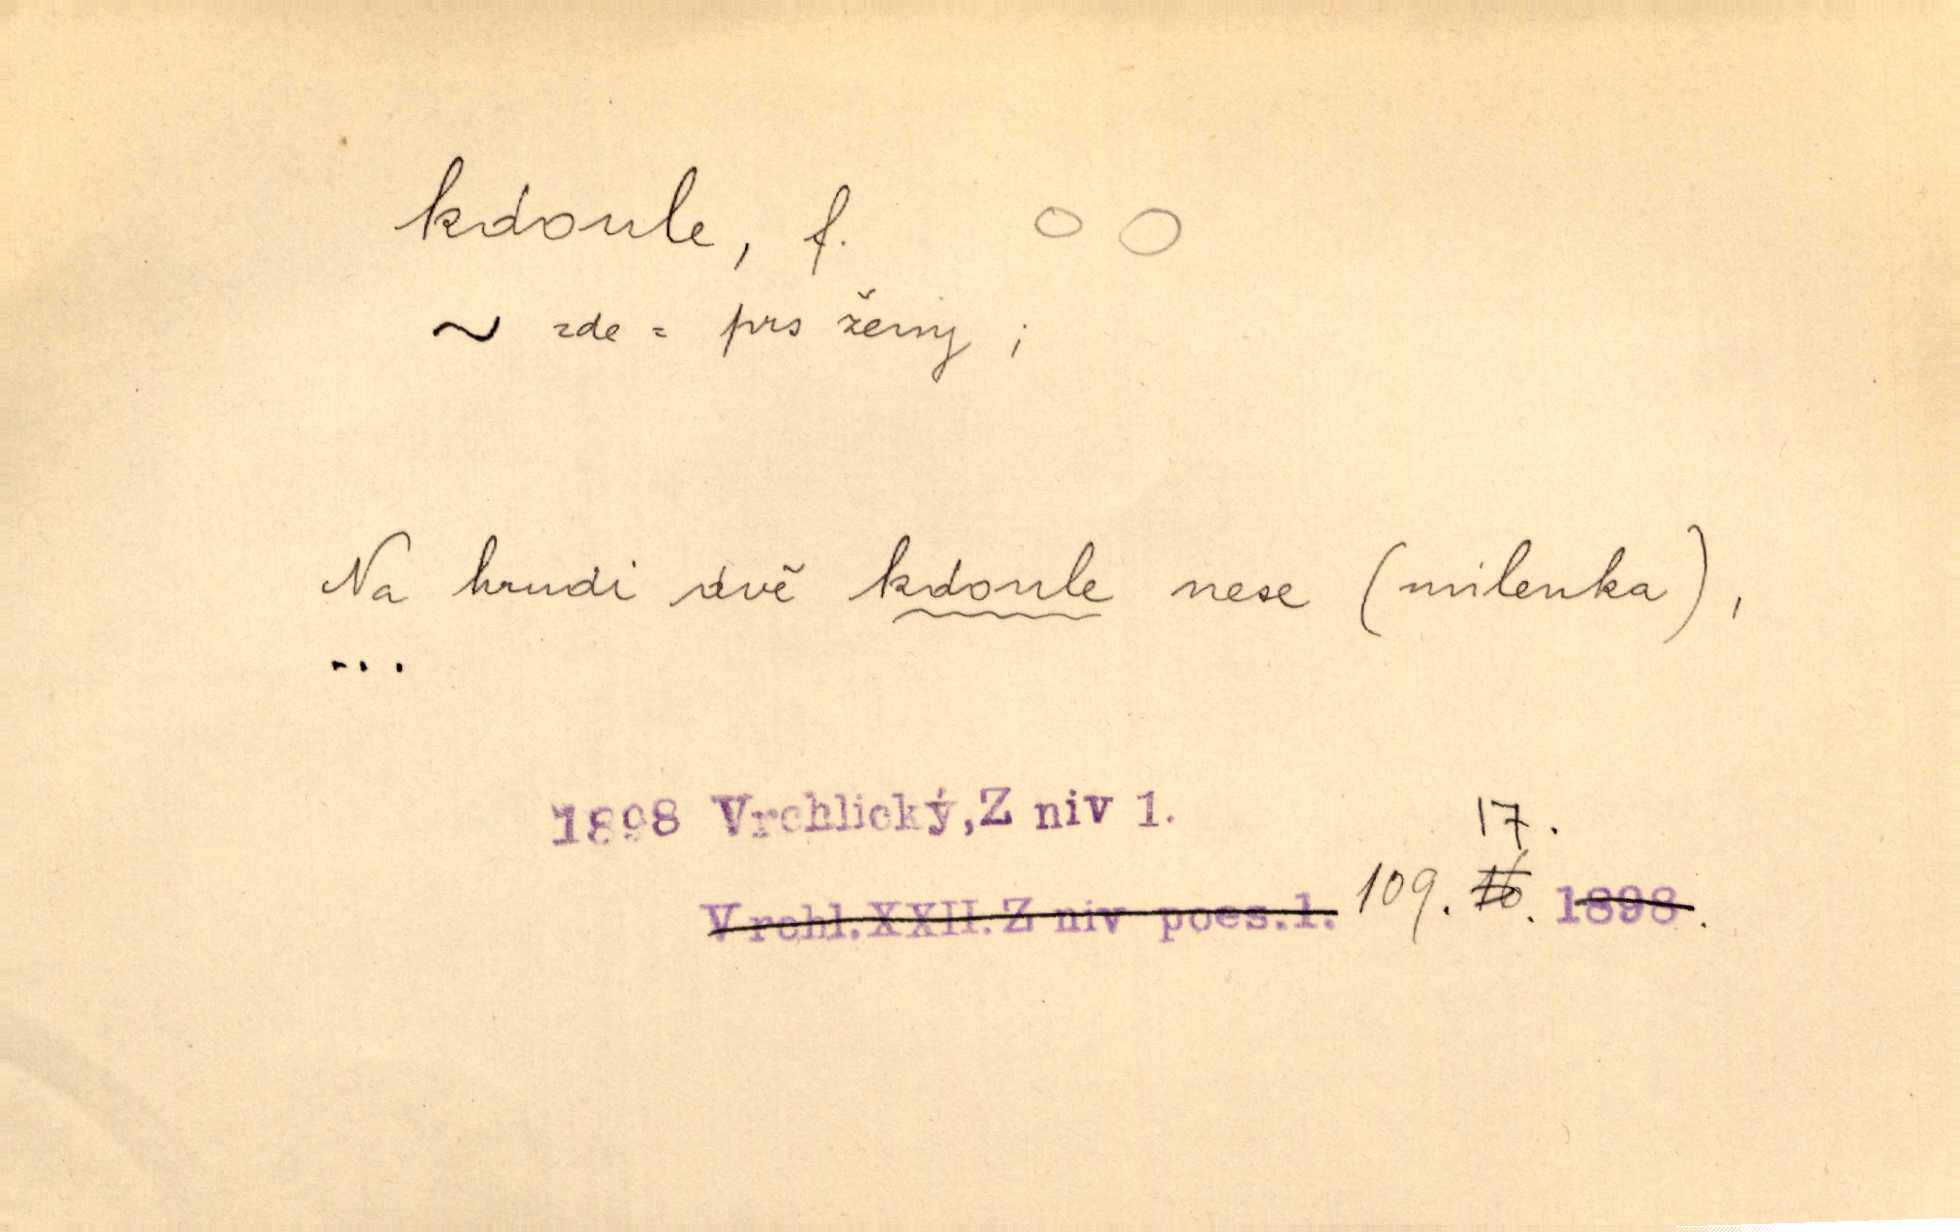 kdoule, f.
~ zde = prs ženy ;
Na hrudi dvě kdoule nese (milenka),
...
1898 Vrchlický,Z niv 1.
17.
Vrchl.XXII.Z niv poes.1. 109. 16. 1898.